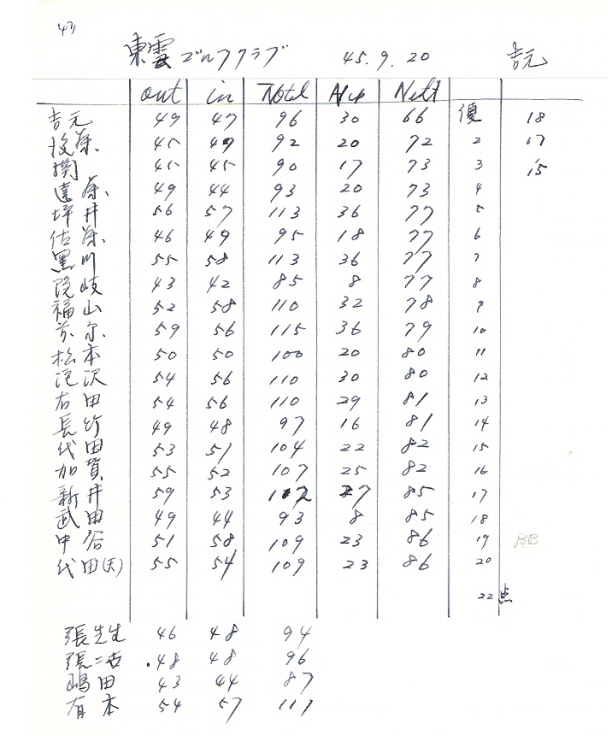 43
東雲ゴルフクラブ 45.9.20 吉元
out in Total H'cp Nett
吉元 49 47 96 30 66 優 18
45 47 92 20 72 2 17
関 45 45 90 17 73 3 15
遠藤 49 44 93 20 73 4
坪井 56 57 113 36 77 5
佐藤 46 49 95 18 77 6
黒川 55 58 113 36 77 7
43 42 85 8 77 8
福山 52 58 110 32 78 9
59 56 115 36 79 10
松本 50 50 100 20 80 11
沢 54 56 110 30 80 12
右田 54 56 110 29 81 13
長竹 49 48 97 16 81 14
代田 53 51 104 22 82 15
加賀 55 52 107 25 82 16
新井 59 53 112 27 85 17
武田 49 44 93 8 85 18
中谷 51 58 109 23 86 19 BB
代田(夫) 55 54 109 23 86 20
22点
張先生 46 48 94
張二古 48 48 96
嶋田 43 44 87
有本 54 57 111